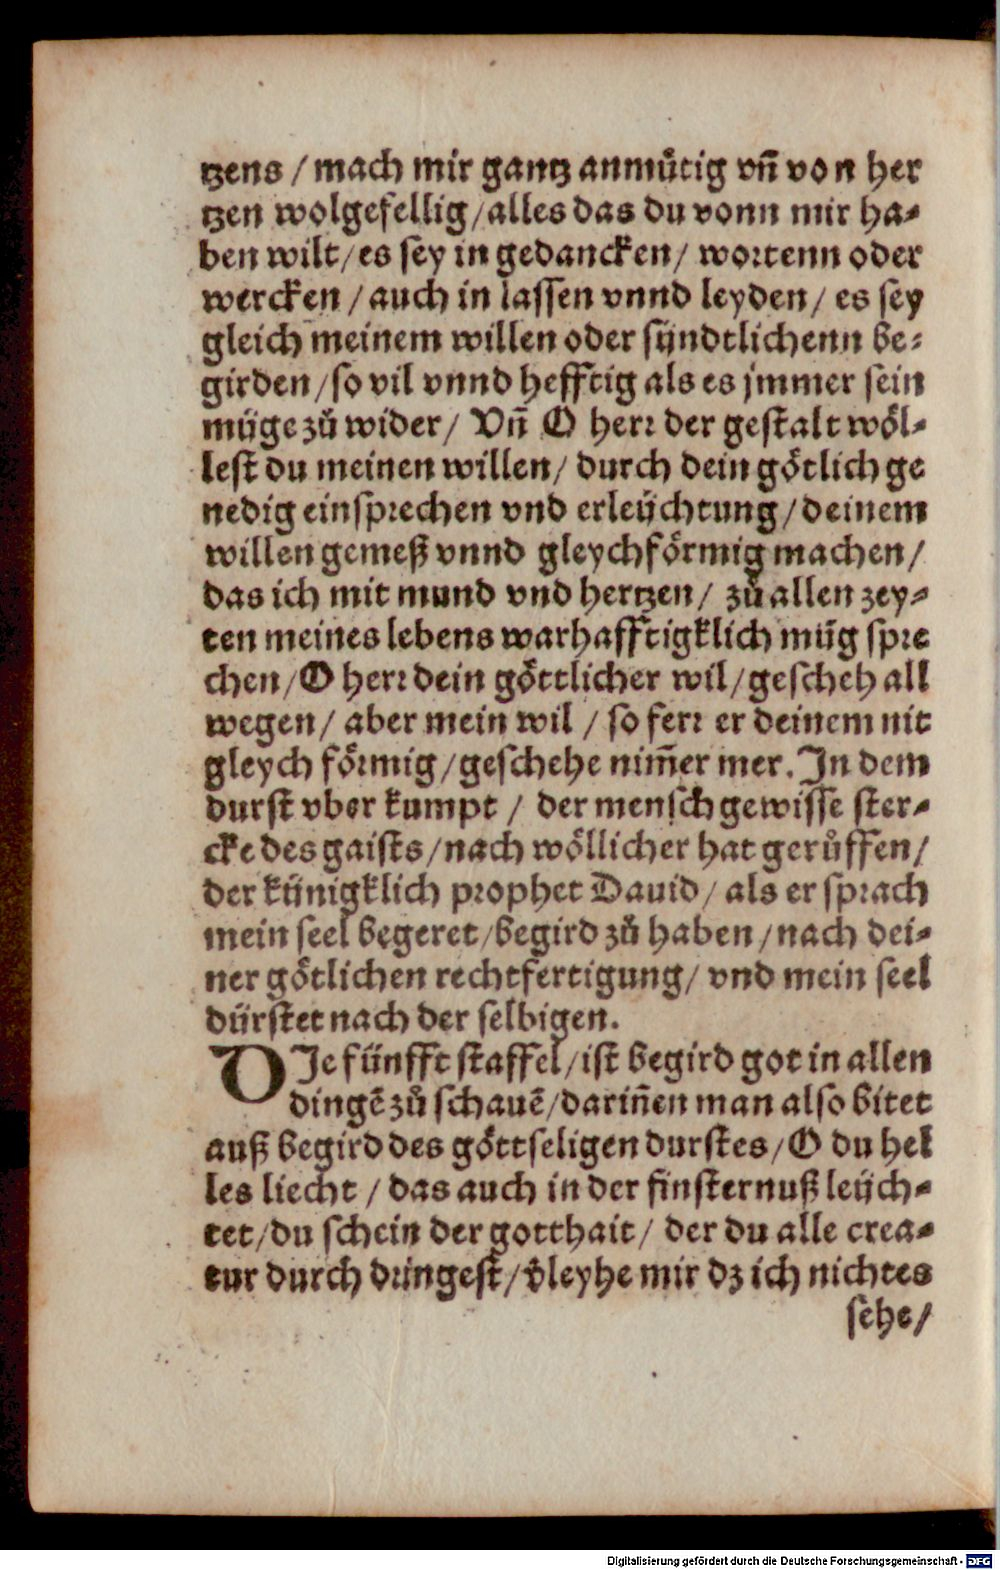 tzens / mach mir gantz anmuͤtig vn̄ von her
tzen wolgefellig / alles das du vonn mir ha-
ben wilt / es sey in gedancken / wortenn oder
wercken / auch in lassen vnnd leyden / es sey
gleich meinem willen oder syndtlichenn be-
girden / so vil vnnd hefftig als es jmmer sein
müge zuͦ wider / Vn̄ O herr der gestalt woͤl-
lest du meinen willen / durch dein goͤtlich ge
nedig einsprechen vnd erleüchtung / deinem
willen gemeß vnnd gleychfoͤrmig machen /
das ich mit mund vnd hertzen / zuͦ allen zey-
ten meines lebens warhafftigklich müg spre
chen / O herr dein goͤttlicher wil / gescheh all
wegen / aber mein wil / so ferr er deinem nit
gleych foͤrmig / geschehe nim̄er mer. In dem
durst vber kumpt / der mensch gewisse ster-
cke des gaists / nach woͤllicher hat geruͦffen /
der künigklich prophet Dauid / als er sprach
mein seel begeret / begird zuͦ haben / nach dei-
ner goͤtlichen rechtfertigung / vnd mein seel
dürstet nach der selbigen.
DIe fünfft staffel / ist begird got in allen
dingē zuͦ schauē / darin̄en man also bitet
auß begird des goͤttseligen durstes / O du hel
les liecht / das auch in der finsternuß leüch-
tet / du schein der gotthait / der du alle crea-
tur durch dringest / v̓leyhe mir dz ich nichtes
sehe /
Digitalisierung gefördert durch die Deutsche Forschungsgemeinschaft - DFG